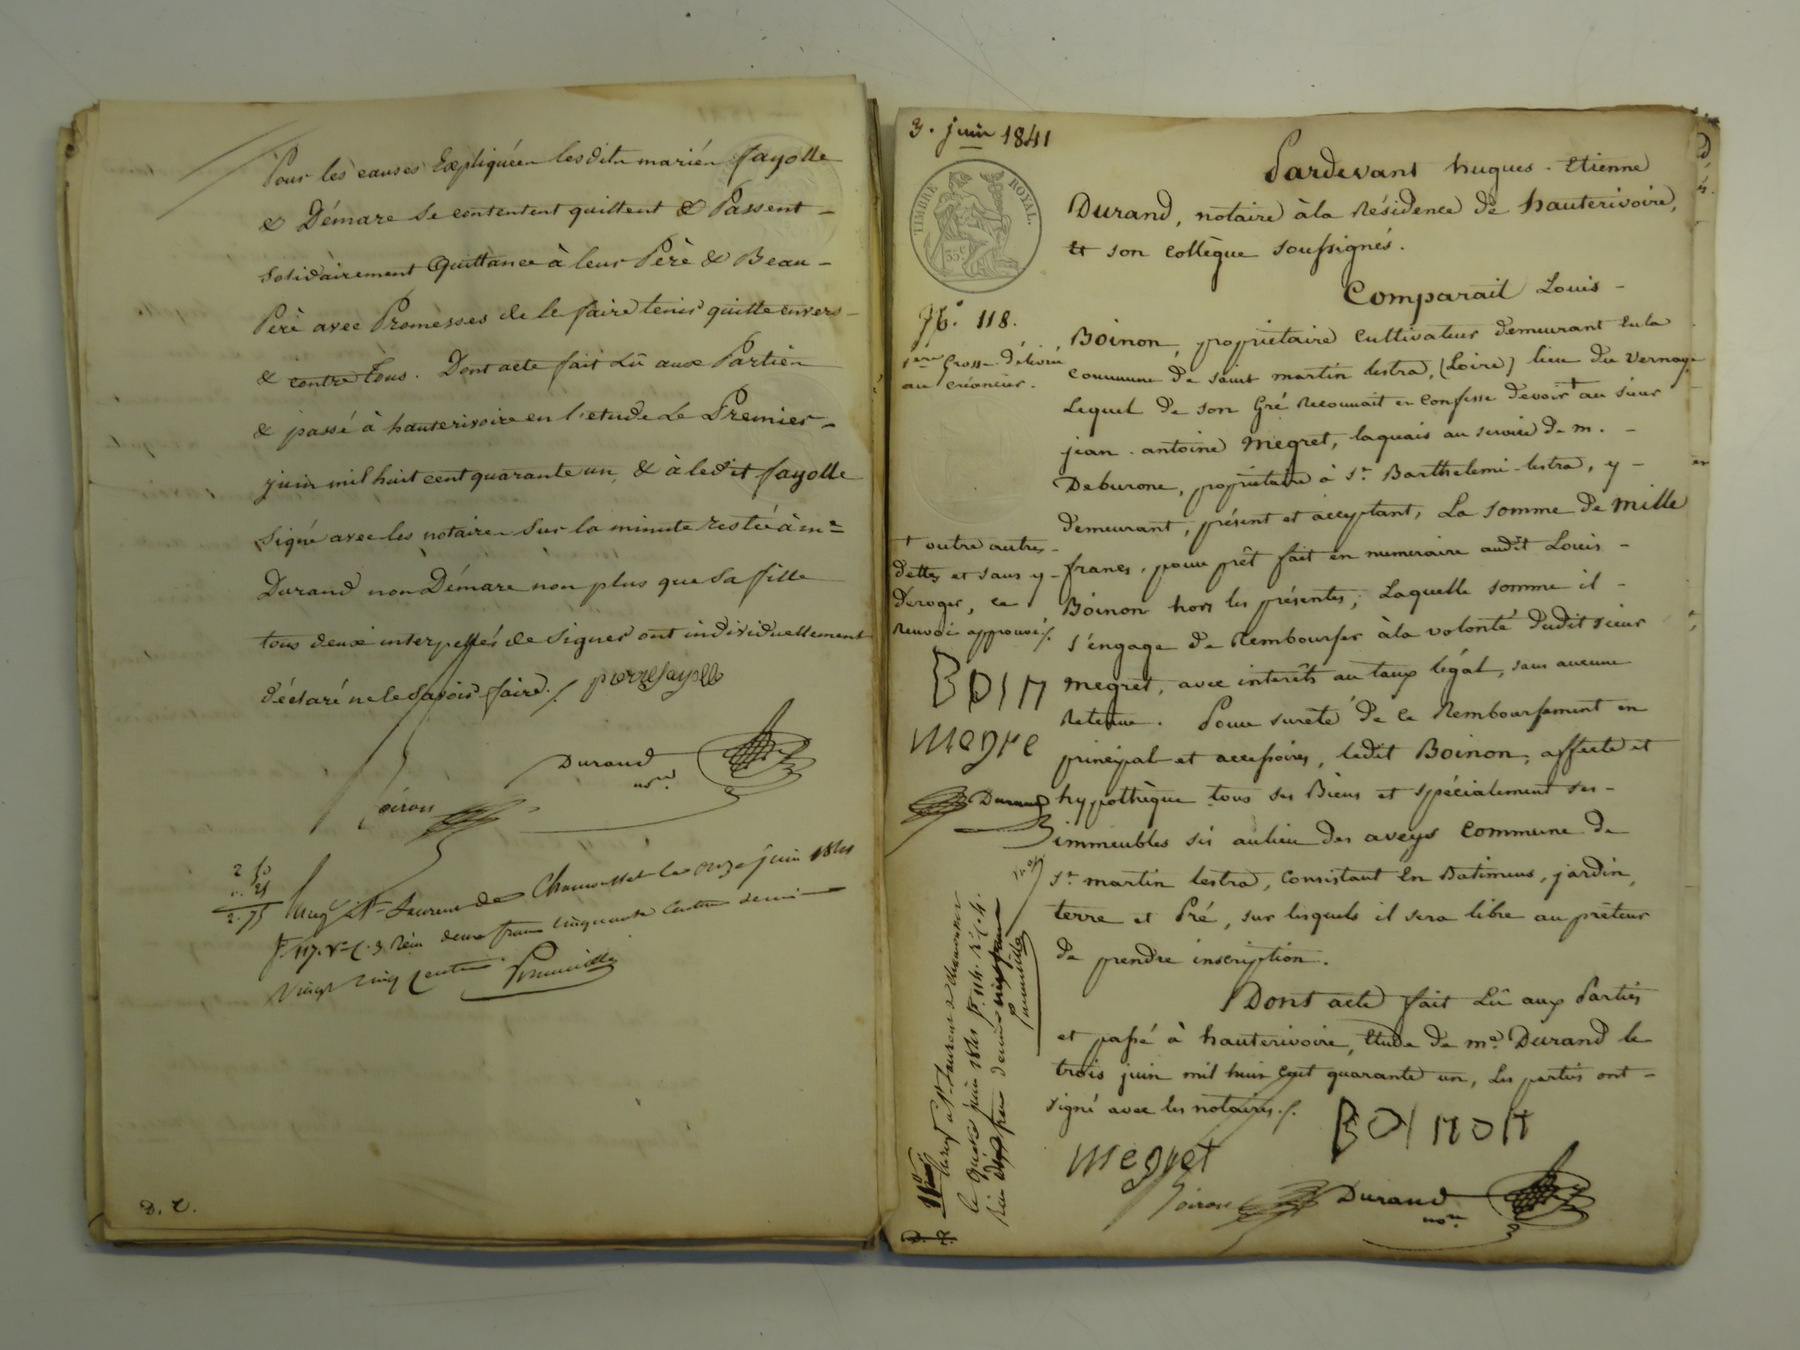 Pour les causes Expliquéen lesdits mariés fayolle
& Démare se contentent quittent & Passent -
solidairement Quittance à leur Père & Beau -
Père avec Promesses de le faire tenir quitte envers -
& contre tous. Dont acte fait Lû aux Parties
& passé à hauterivoire en l'etude Le Premier -
juin mil huit cent quarante un, & à ledit fayolle
signé avec les notaires sur la minute restée à me
Durand non Démare non plus que sa fille
tous deux interpellés de signer ont individuellement
déclaré ne le savoir faire./. pierre fayolle
Durand
nore.
Coiron
2 50
0. 25
2. 75
Enregé à St Laurent de Chamousset le onze juin 1841
fo. 117. Vo C. 3. Reçu deux francs cinquante centimes decime
vingt cinq centimes
D. C.
3. juin 1841
TIMBRE ROYAL.
35c
No. 118.
1ere Grosse délivrée
au créancier.
Pardevant hugues - Etienne
Durand, notaire à la Résidence de hauterivoire,
et son collègue soussignés.
Comparait Louis -
Boinon, propriétaire cultivateur demeurant en la
commune de saint martin lestra, (Loire) lieu du Vernay
Lequel de son Gré Reconnait et Confesse devoir + au sieur
jean - antoine Megret, laquais au service de m. -
Deburone, propriétaire à St. Barthelemi lestra, y -
demeurant, présent et acceptant, La somme de mille
francs, pour prêt fait en numeraire audit Louis -
Boinon hors les présentes; Laquelle somme il -
s'engage de Rembourser à la volonté dudit sieur
Megret, avec interêts au taux légal, sans aucune
Retenue. Pour sureté de ce Remboursement en
principal et accessoires, ledit Boinon, affecte et
hypothèque tous ses Biens et spécialement ses -
immeubles sis au lieu des aveys Commune de
St. martin lestra, Consistant en Batimens, jardin,
terre et Pré, sur lesquels il sera libre au prêteur
de prendre inscription.
Dont acte fait Lû aux Parties
et passé à hauterivoire, Etude de me. Durand le
trois juin mil huit cent quarante un, Les parties ont -
signé avec les notaires./.
+ outre autres -
dettes et sans y -
déroger, ce
Renvoi approuvé/.
BOIN
Megre
Durand
Enregé à St Laurent de Chamousset
le quinze juin 1841 fo. 114. Ro C. 4.
BOINON
Megret
Coiron
Durand
nore.